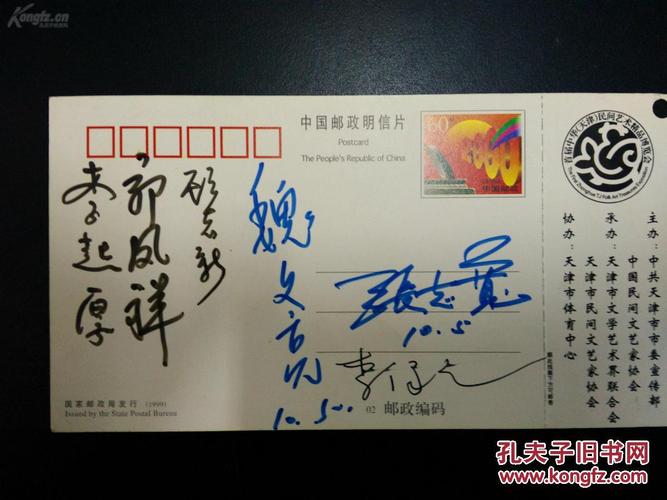 Kongfz.cn
中国邮政明信片
Postcard
The People's Republic of China
60
中国邮政
顾志新
郭凤祥
魏文亮
10.5
张志宽
10.5
国家邮政局发行 (1999)
Issued by the State Postal Bureau
02 邮政编码
首届中华(天津)民间艺术精品博览会
主办:中共天津市市委宣传部
中国民间文艺家协会
承办:天津市文学艺术界联合会
天津市民间文艺家协会
协办:天津市体育中心
孔夫子旧书网
KONGFZ.COM